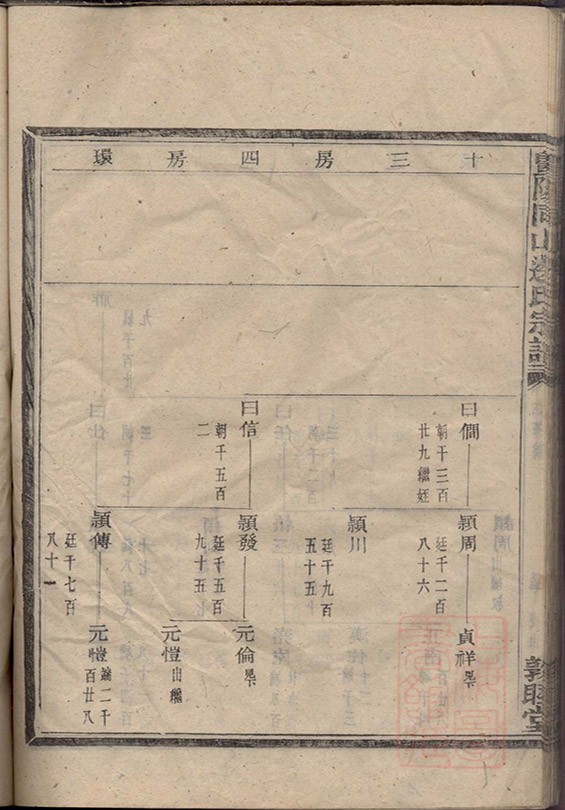 暨陽同山邊氏宗譜
敦睦堂
十三房四房環
曰僩
朝千三百
廿九繼姪
穎周
廷千二百
八十六
貞祥
穎川
廷千九百
五十五
曰信
朝千五百
二
穎發
廷千五百
九十五
元倫
元愷出繼
穎傳
廷千七百
八十一
元愷
二千
百廿八